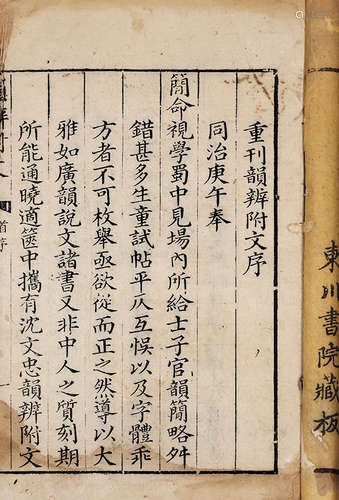 東川書院藏板
重刊韻辨附文序
同治庚午奉
簡命視學蜀中見場內所給士子官韻簡略舛
錯甚多生童試帖平仄互悞以及字體乖
方者不可枚舉亟欲從而正之然導以大
雅如廣韻說文諸書又非中人之質刻期
所能通曉適篋中攜有沈文忠韻辨附文
首序